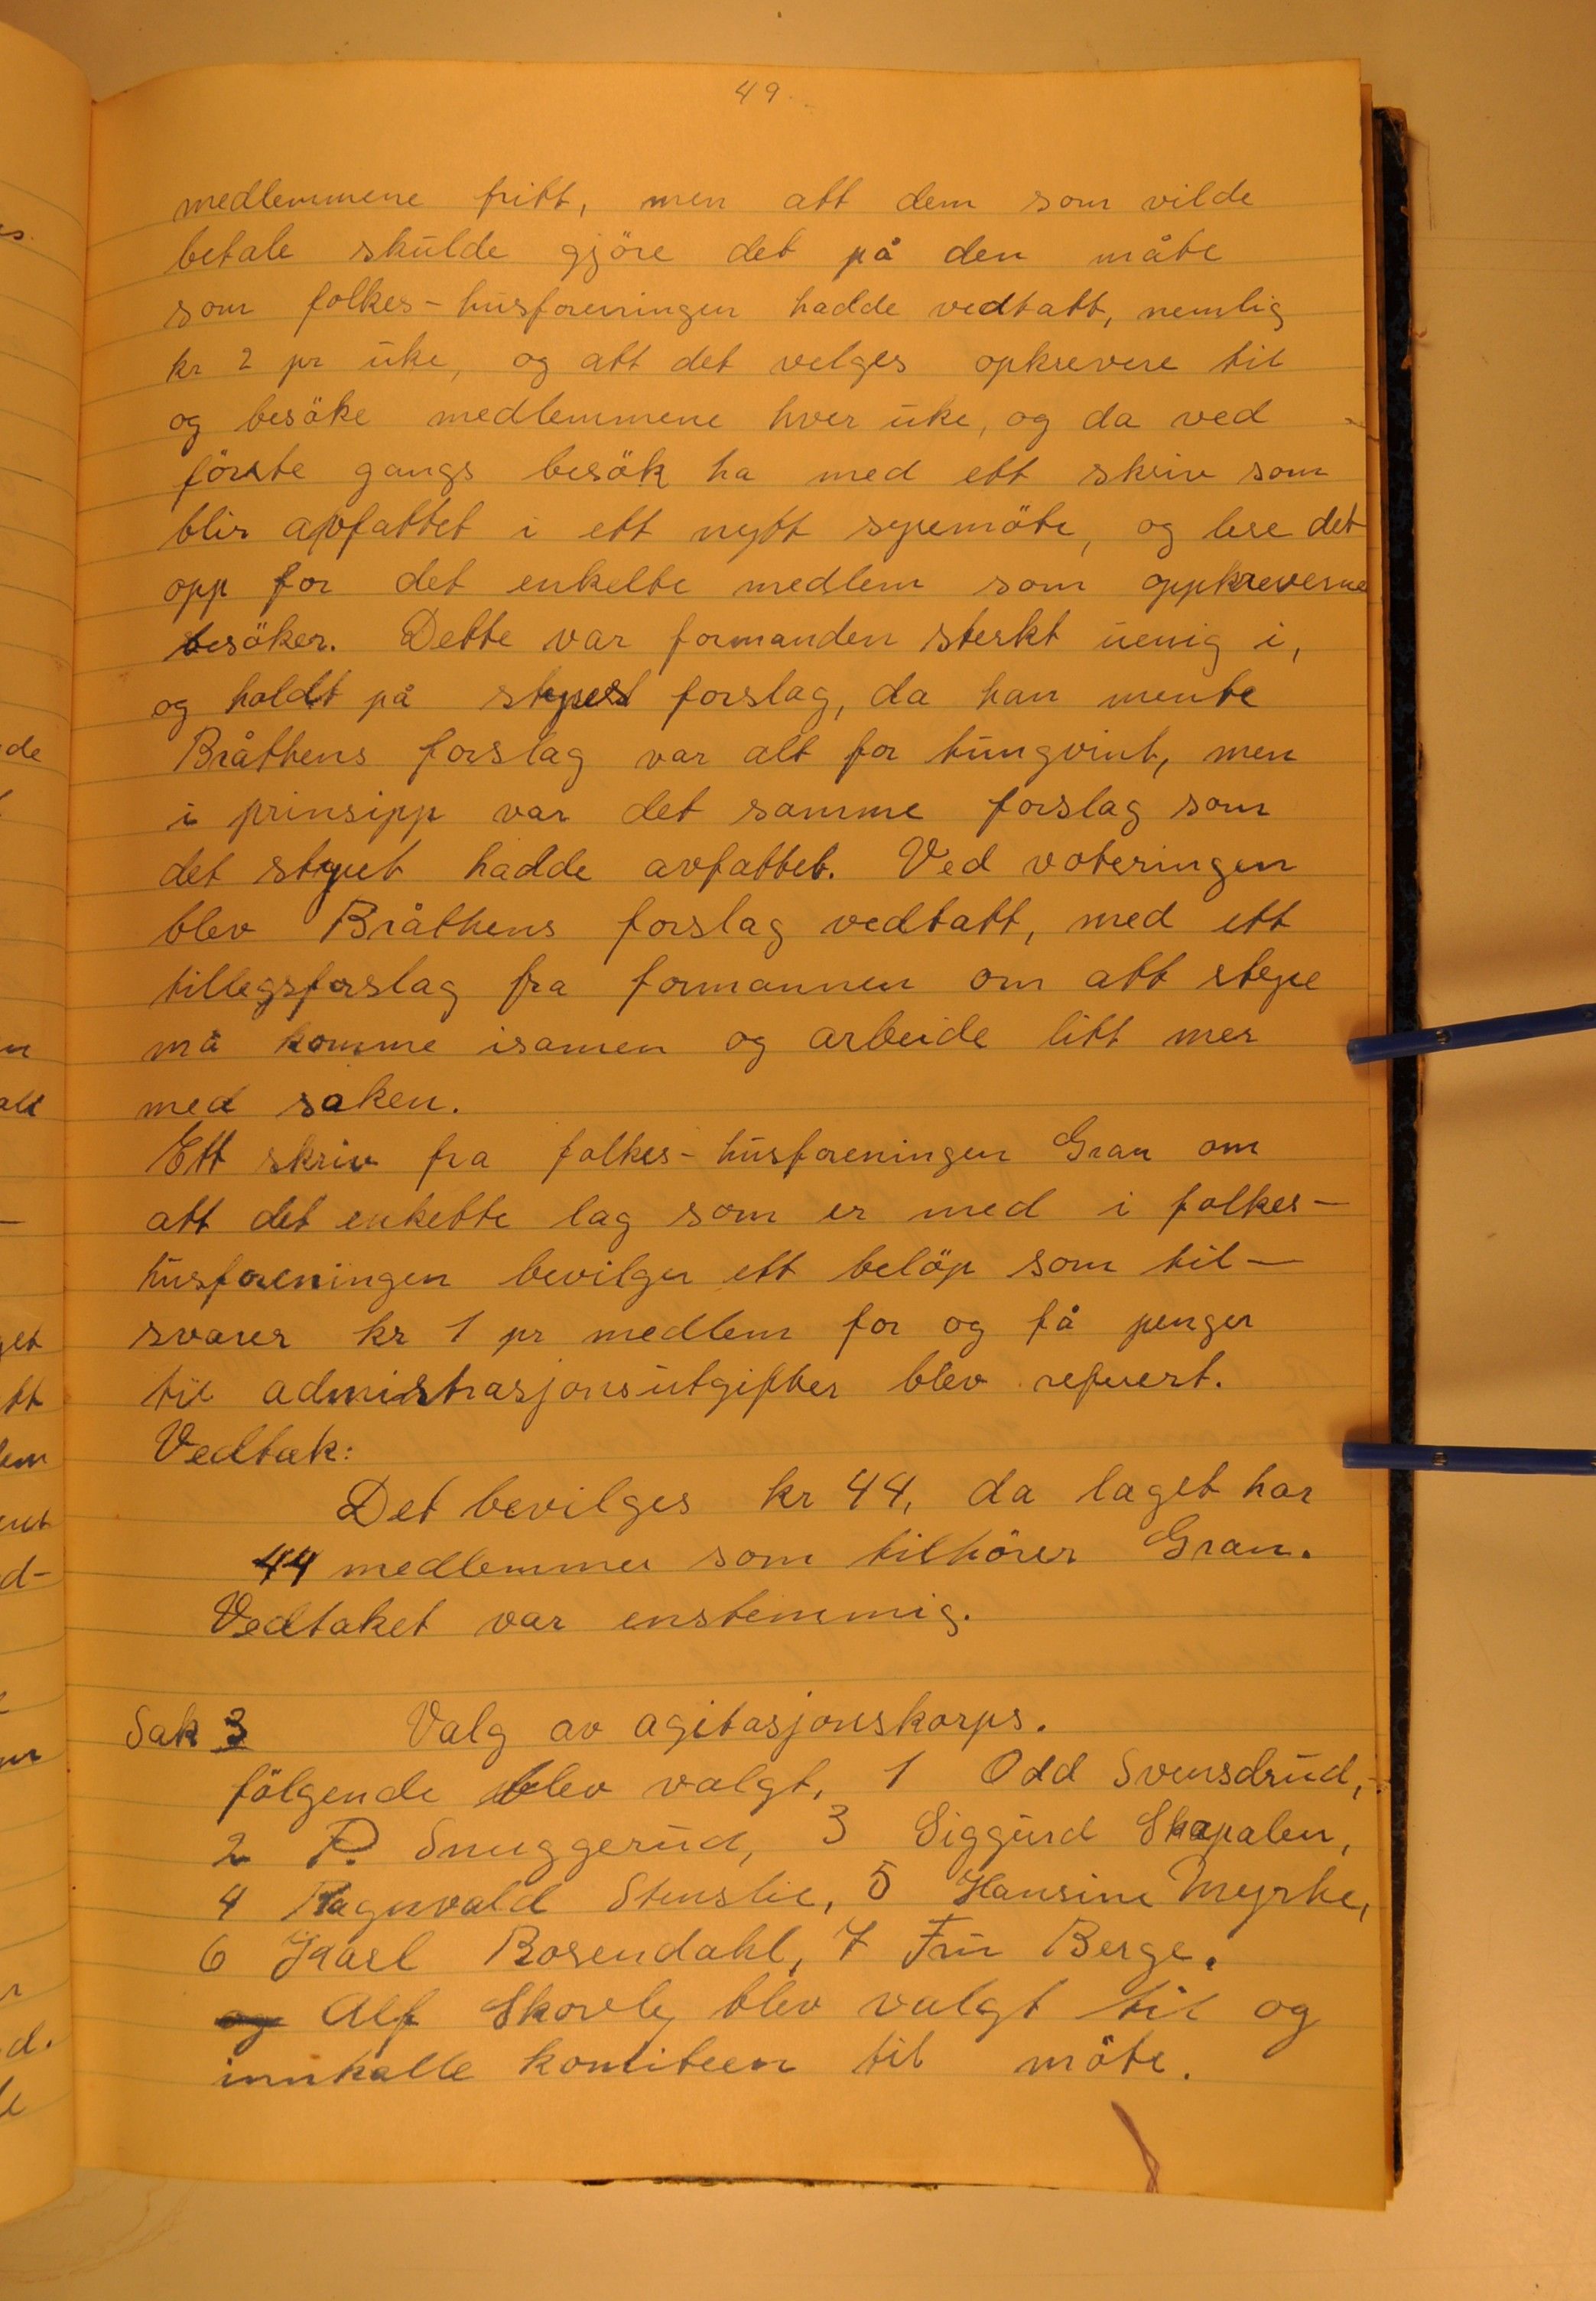 49
medlemmene fritt, men att dem som vilde
betale skulde gjöre det på den måte
som folkes-husforeningen hadde vedtatt, nemlig
kr 2 pr uke, og att det velges opkrevere til
og besöke medlemmene hver uke, og da ved
förste gangs besök ha med ett skriv som
blir avfattet i ett nytt syremöte, og lese det
opp for det enkelte medlem som oppkreverne
besöker. Dette var formanden sterkt uenig i,
og holdt på styrets forslag, da han mente
Bråthens forslag var alt for tungvint, men
i prinsipp var det samme forslag som
det styret hadde avfattet. Ved voteringen
blev Bråthens forslag vedtatt, med ett
tillegsforslag fra formannen om att styre
må komme isamen og arbeide litt mer
med saken.
Ett skriv fra folkes-husforeningen Gran om
att det enkelte lag som er med i folkes-
husforeningen bevilger ett belöp som til-
svarer kr 1 pr medlem for og få penger
til admistrasjonsutgifter blev referert.
Vedtak:
Det bevilges kr 44, da laget har
44 medlemmer som tilhörer Gran.
Vedtaket var enstemmig.
Sak 3 Valg av agitasjonskorps.
fölgende blev valgt, 1 Odd Svensdrud,
2 P. Snuggerud, 3 Siggurd Skapalen,
4 Ragnvald Stenslie, 5 Hansine Myrhe,
6 Karl Rosendahl, 7 Fru Berge.
og Alf Skovly blev valgt til og
innkalle komiteen til möte.